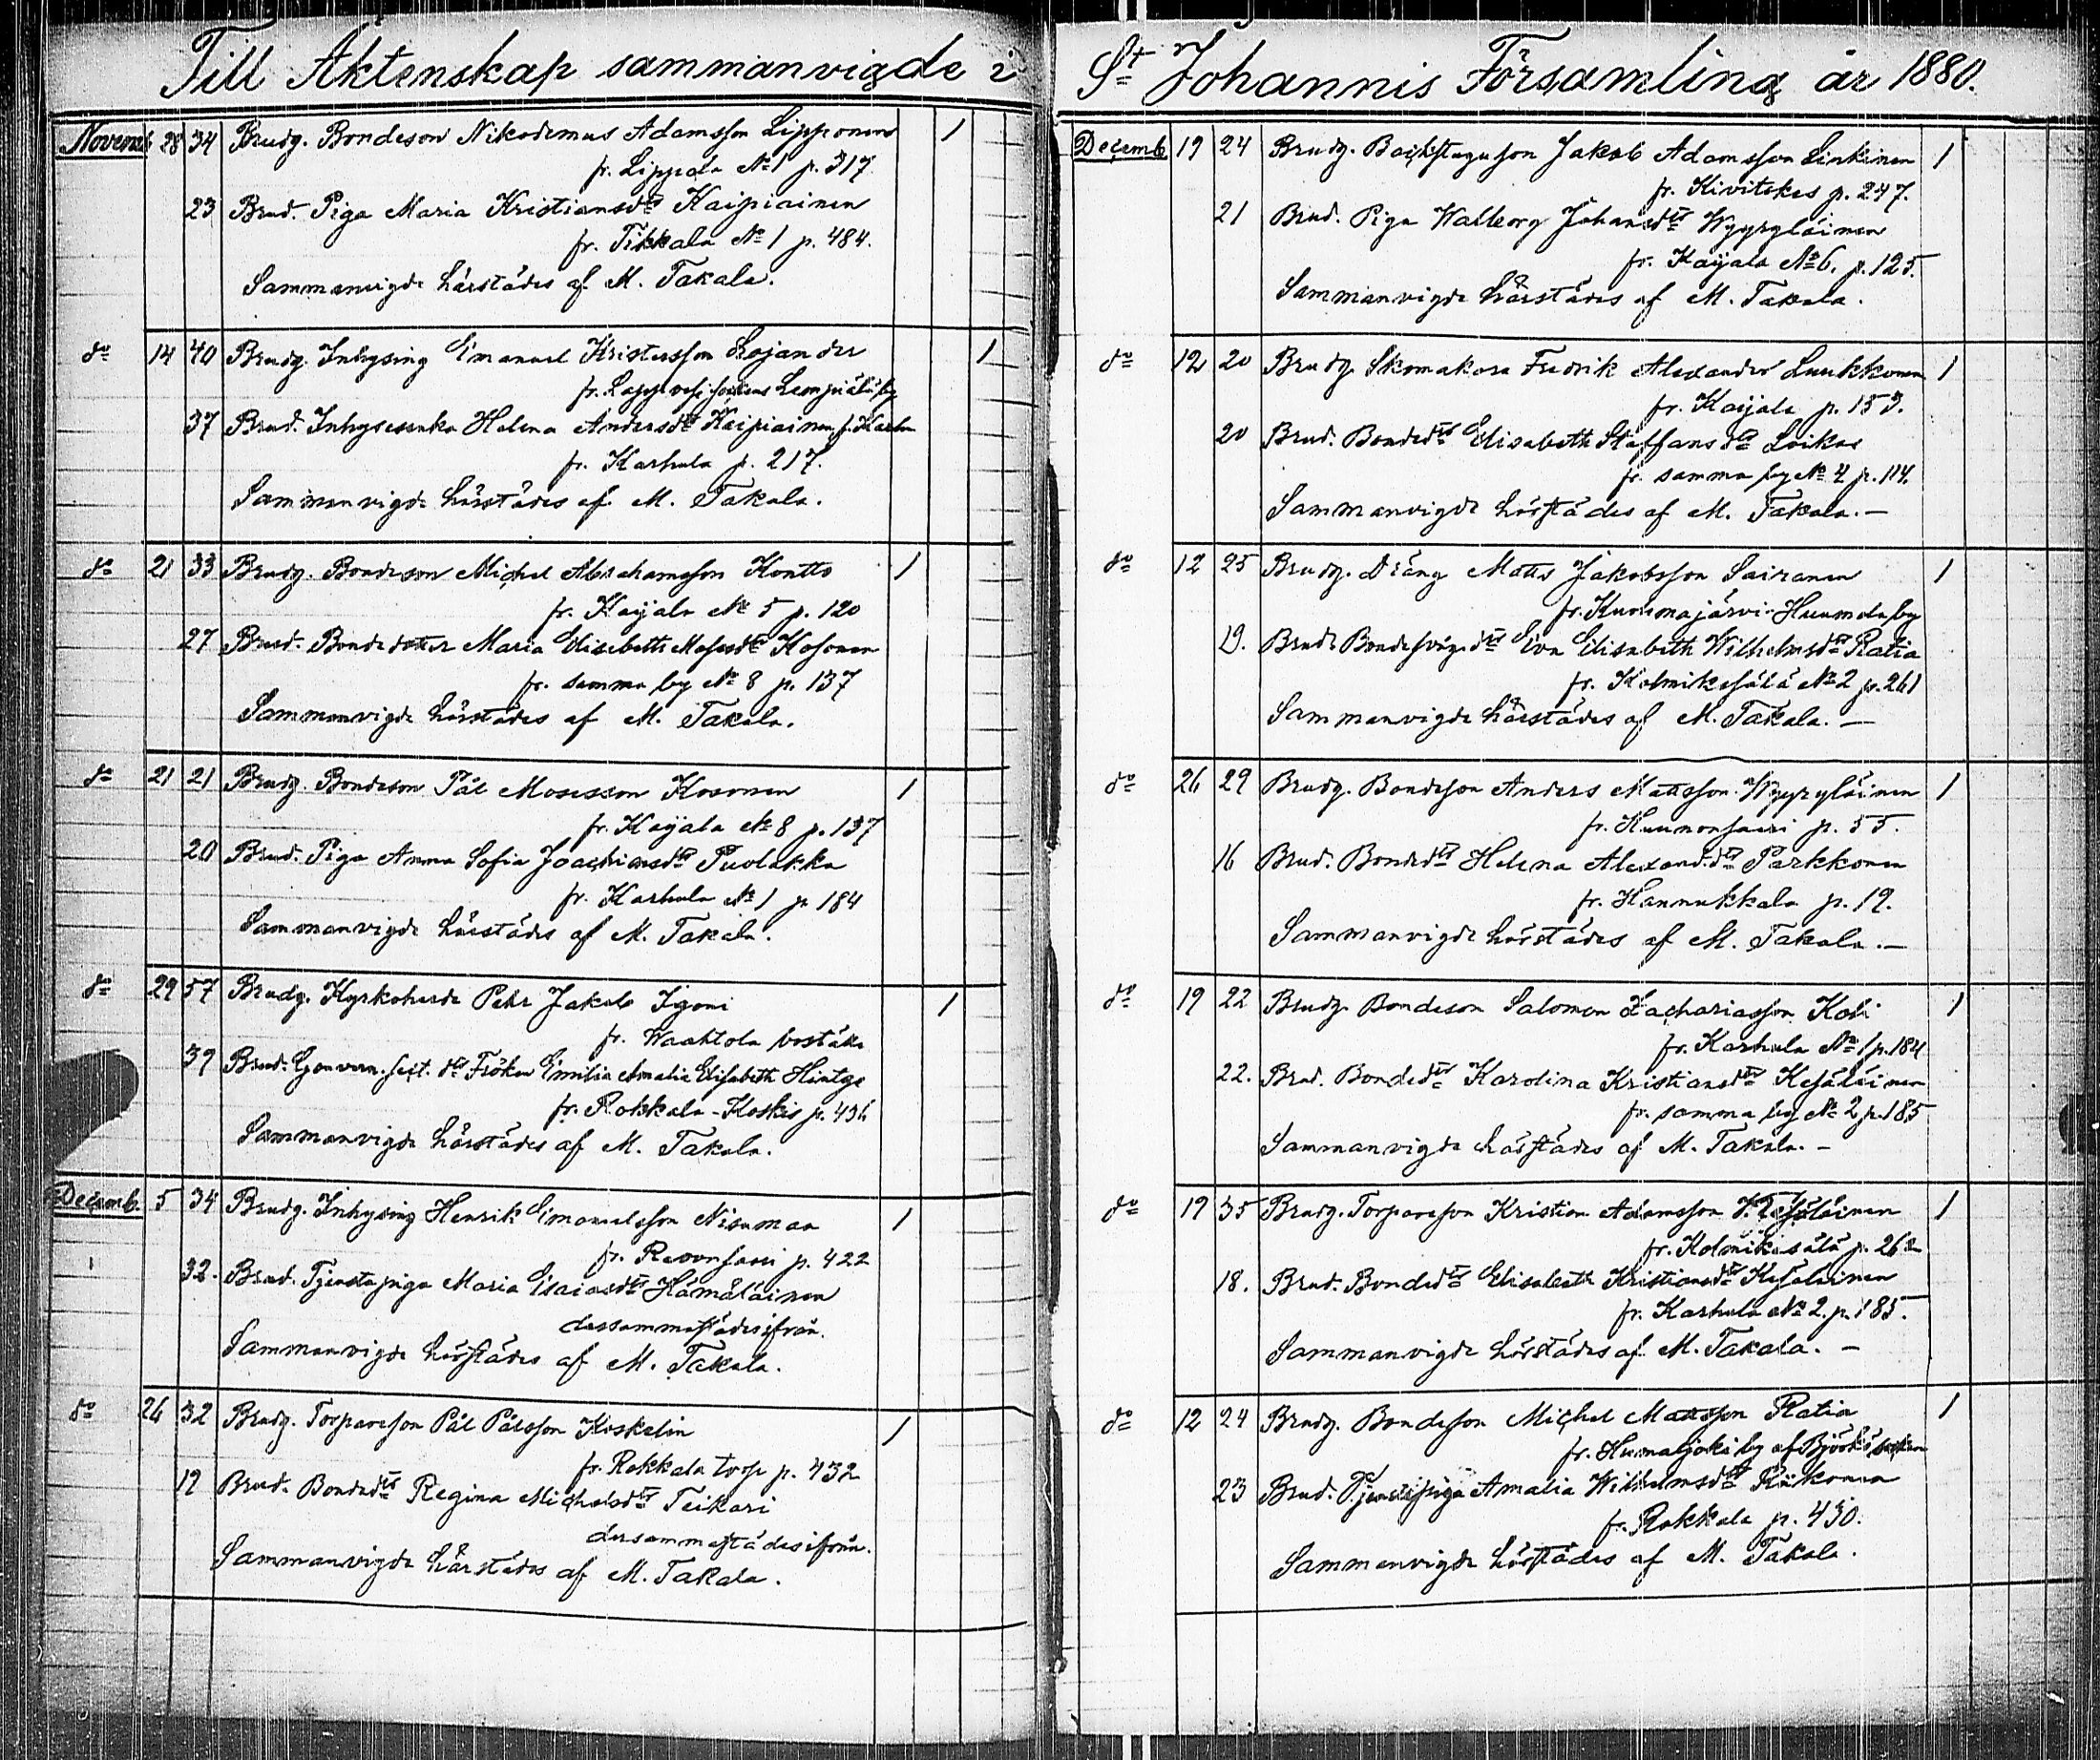 Till Äktenskap sammanvigde i
Novemb. 28 34 Brudg. Bondeson Nikodemus Adamsson Lipponen 1
fr. Lippola No 1 p. 317.
23 Brud. Piga Maria Kristiansdr Kaipiainen
fr. Tikkala No 1 p. 484.
Sammanvigde härstädes af M. Takala.
do 14 40 Brudg. Inhysing Emanuel Kristersson Lojander 1
fr. Lappvesi sockens by
37 Brud. Inhysesenka Helena Andersdr Kaipiainen
fr. Karhula p. 217.
Sammanvigde härstädes af M. Takala.
do 21 33 Brudg. Bondeson Michel Abrahamsson Kontto 1
fr. Kaijala No 5 p. 120
27 Brud. Bondedotter Maria Elisabeth Mosesdr Kosonen
fr. samma by No 8 p. 137
Sammanvigde härstädes af M. Takala.
do 21 21 Brudg. Bondeson Pål Mosesson Kosonen 1
fr. Kaijala No 8 p. 137
20 Brud. Piga Anna Sofia Joachimsdr Puolakka
fr. Karhula No 1 p 184
Sammanvigde härstädes af M. Takala.
do 29 57 Brudg. Kyrkoherde Pehr Jakob Igoni 1
fr. Waahtola boställe
39 Brud. Gouvern. sect. dr Fröken Emilia Amalia Elisabeth Hintze
fr. Rokkala-Koskis p. 436
Sammanvigde härstädes af M. Takala.
Decemb. 5 34 Brudg. Inhysing Henrik Emanuelsson Nisuman 1
fr. Revonsaari p. 422
32. Brud. Tjenstepiga Maria Esaiasdr Hämäläinen
dersammastädes ifrån.
Sammanvigde härstädes af M. Takala.
do 26 32 Brudg. Torpareson Pål Pålsson Koskelin 1
fr. Rokkala torp p. 432
19 Brud. Bondedr Regina Michelsdr Teikari
dersammastädes ifrån.
Sammanvigde härstädes af M. Takala.
St Johannis Församling år 1880.
Decemb. 19 24 Brudg. Backstuguson Jakob Adamsson Sinkinen 1
fr. Kivitskes p. 247.
21 Brud. Piga Walborg Johansdr Wyyryläinen
fr. Kaijala No 6. p. 125.
Sammanvigde härstädes af M. Takala.
do 12 20 Brudg. Skomakare Fredrik Alexander Luukkonen 1
fr. Kaijala p. 153.
20 Brud. Bondedr Elisabeth Staffansdr Loikas
fr. samma by No 4 p. 114.
Sammanvigde härstädes af M. Takala.—
do 12 25 Brudg. Dräng Matts Jakobsson Sairanen 1
fr. Kuolemajärvi Huumola by
19. Brud. Eva Elisabeth Wilhelmsdr Ratia
fr. Kolmikesälä No 2 p. 261
Sammanvigde härstädes af M. Takala.—
do 26 29 Brudg. Bondeson Anders Mattsson Wyyryläinen 1
fr. Kuunonsaari p. 55.
16 Brud. Bondedr Helena Alexand.dr Parkkonen
fr. Hannukkala p. 19.
Sammanvigde härstädes af M. Takala.—
do 19 22 Brudg. Bondeson Salomon Zachariasson Kobi 1
fr. Karhula No 1 p. 184
22. Brud. Bondedr Karolina Kristiansdr Kesäläinen
fr. samma by No 2 p. 185
Sammanvigde härstädes af M. Takala.—
do 19 35 Brudg. Torpareson Kristian Adamsson Kesäläinen 1
fr. Kolmikesälä p. 262
18. Brud. Bondedr Elisabeth Kristiansdr Kesäläinen
fr. Karhula No 2. p. 185.
Sammanvigde härstädes af M. Takala.—
do 12 24 Brudg. Bondeson Michel Mattsson Ratia 1
fr. Humaljoki by af Björkö socken
23 Brud. Tjenstepiga Amalia Wilhelmsdr
fr. Rokkala p. 430.
Sammanvigde härstädes af M. Takala.